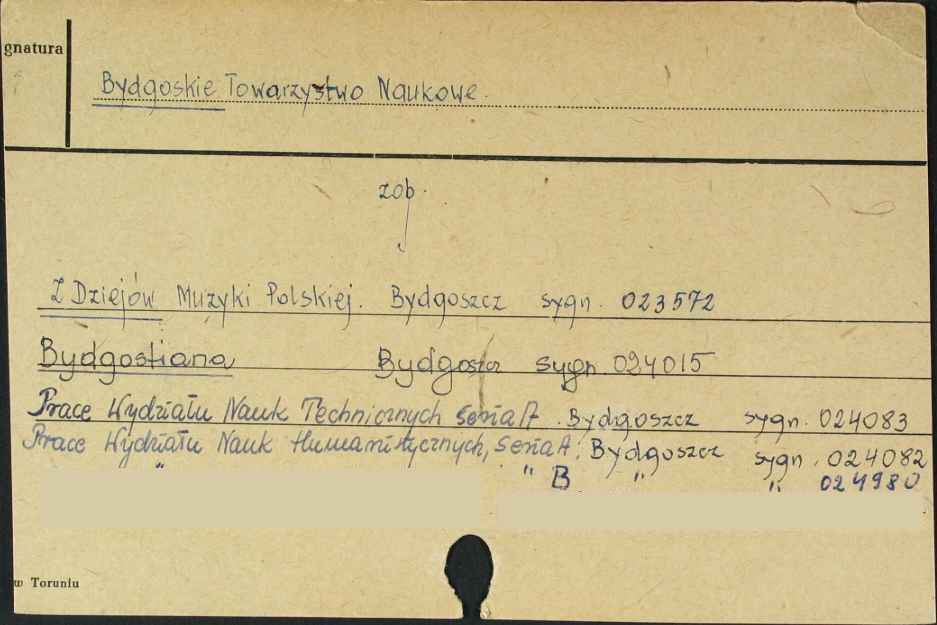 gnatura
Bydgoskie Towarzystwo Naukowe.
zob.
Z Dziejów Muzyki Polskiej. Bydgoszcz sygn. 023572
Bydgostiana Bydgoszcz sygn. 024015
Prace Wydziału Nauk Technicznych Seria A. Bydgoszcz sygn. 024083
Prace Wydziału Nauk Humanistycznych, Seria A. Bydgoszcz sygn. 024082
" " B " " 024980
w Toruniu